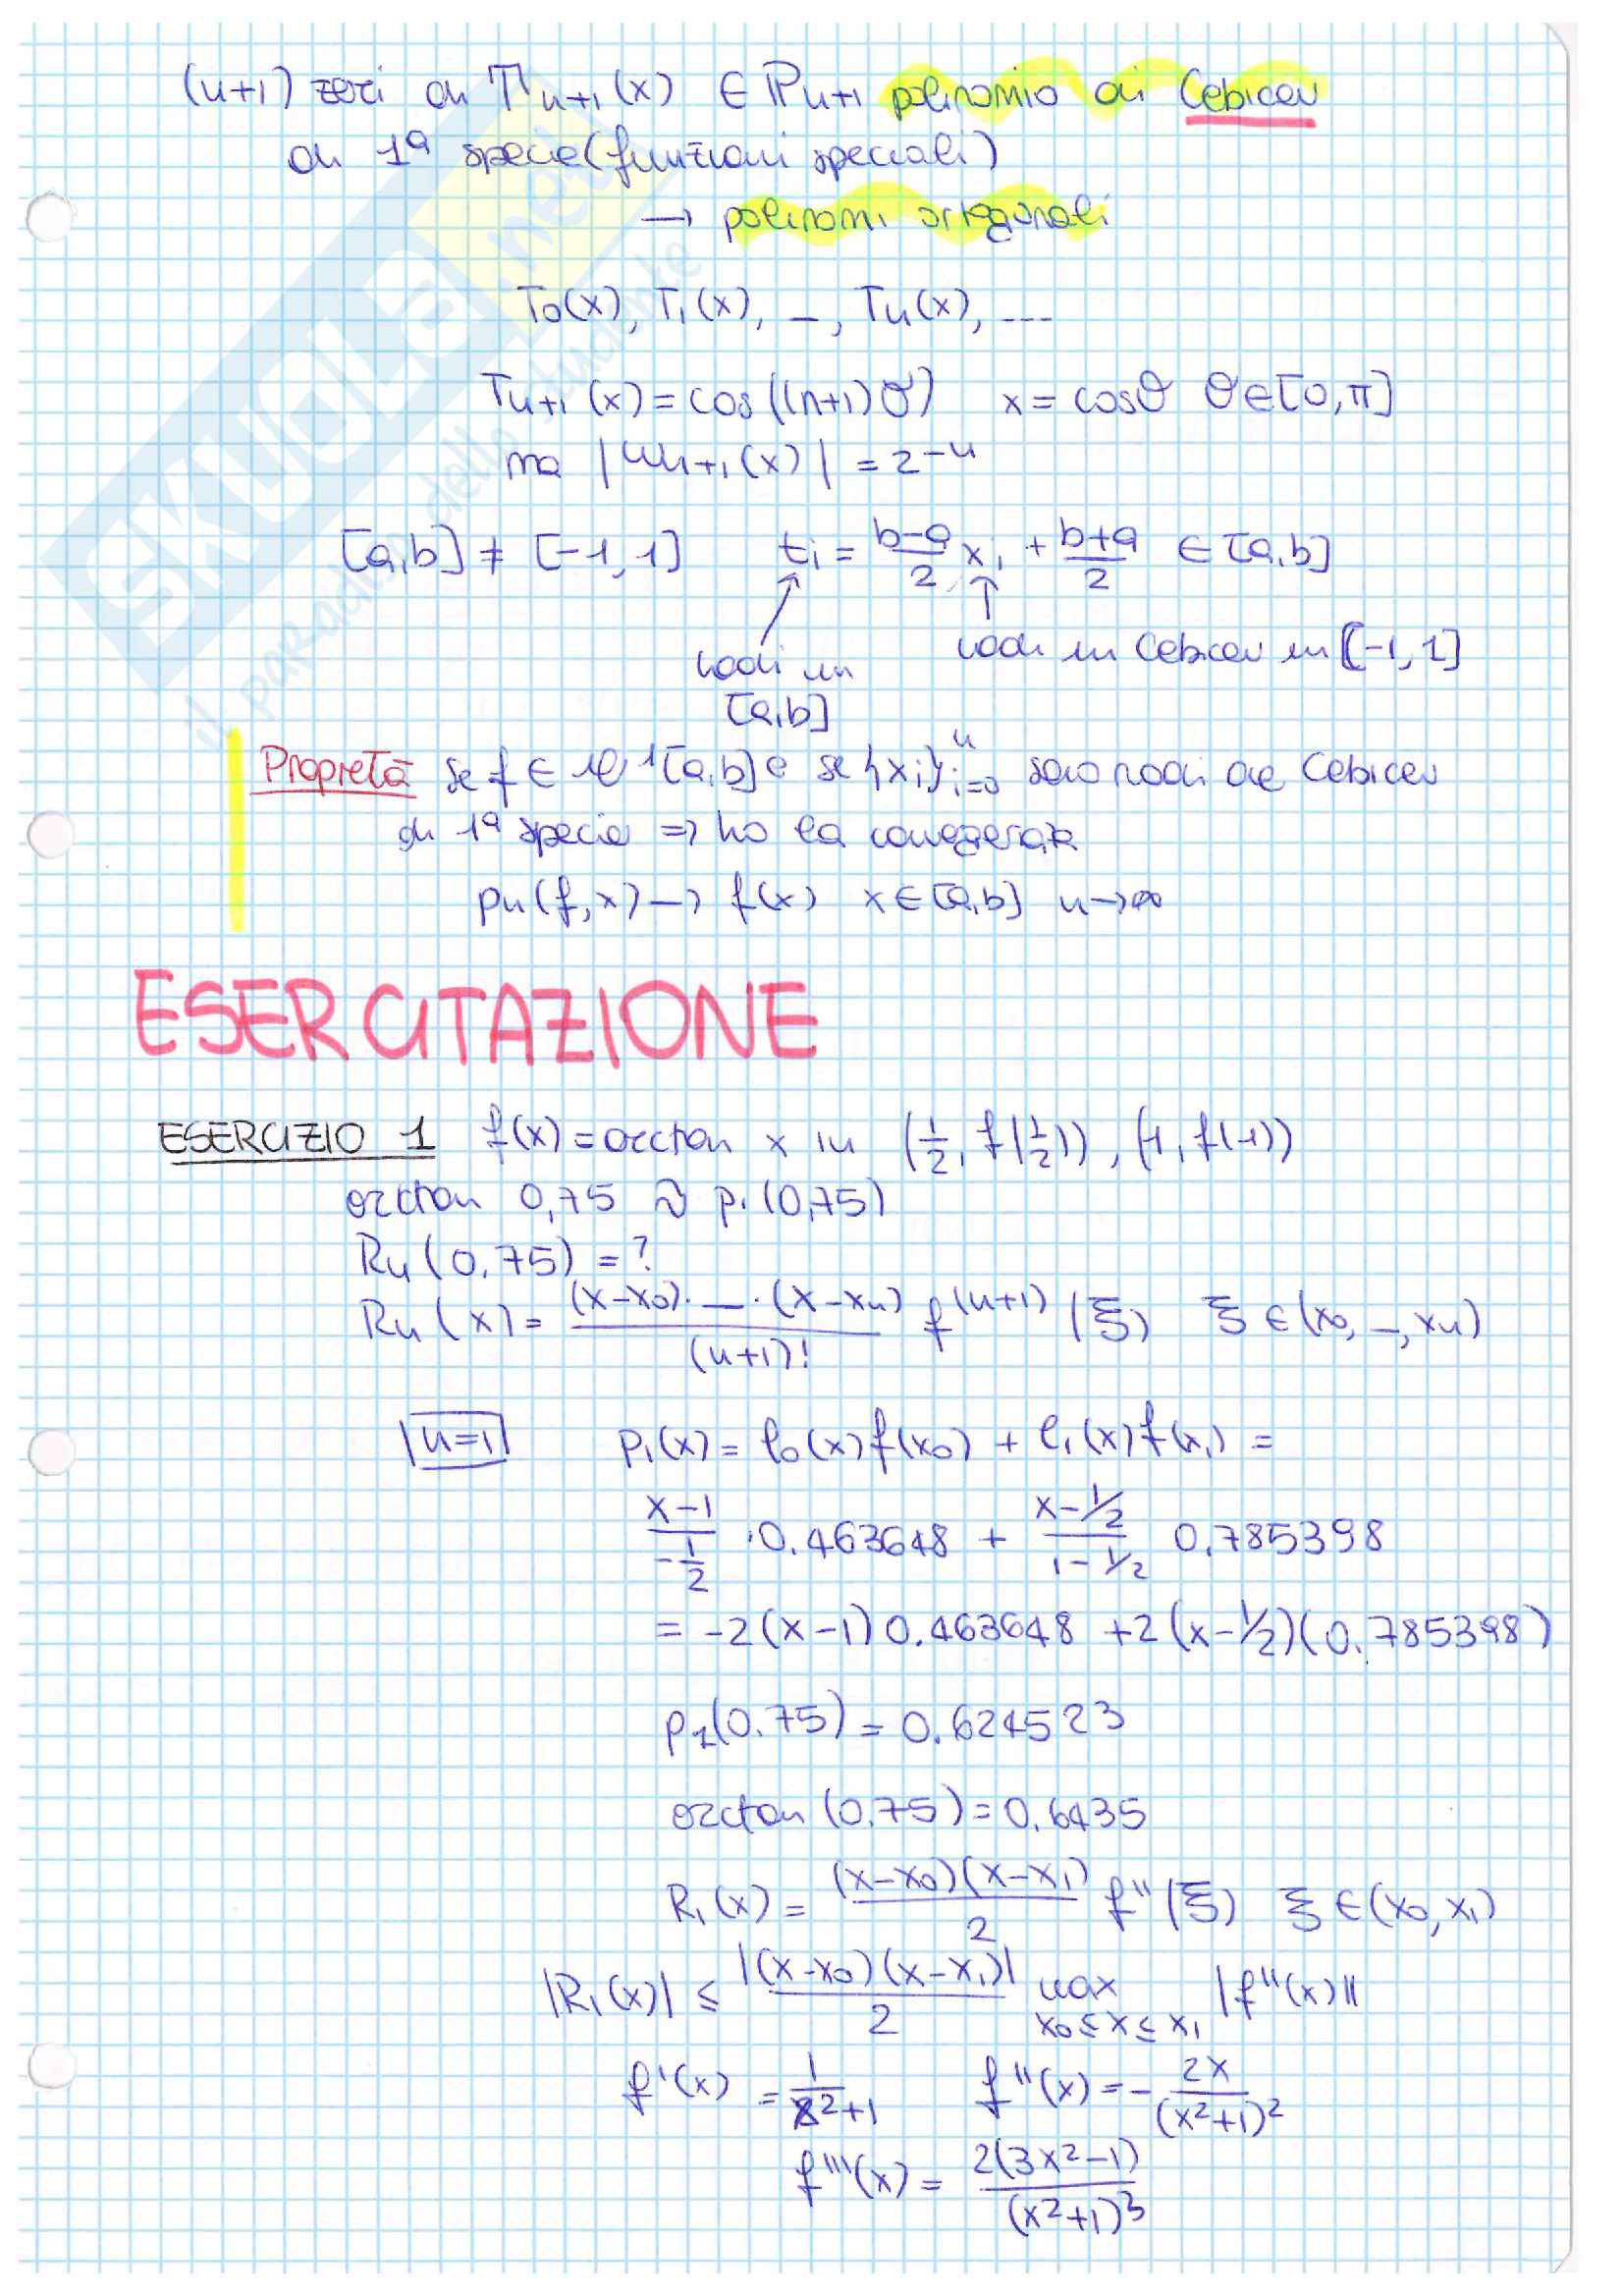 (n+1) zeri di Tn+1(x) ∈ Pn+1 polinomio di Cebicev
di 1ª specie (funzioni speciali)
→ polinomi ortogonali
T0(x), T1(x), _, Tn(x), ---
Tn+1(x) = cos((n+1)θ) x = cosθ θ∈[0,π]
ma |ωn+1(x)| = 2^-n
[a,b] ≠ [-1,1] ti = b-a/2 xi + b+a/2 ∈ [a,b]
nodi in Cebicev in [-1,1]
nodi in
[a,b]
Proprietà se f ∈ C^1[a,b] e se {xi}^n i=0 sono nodi di Cebicev
di 1ª specie ⇒ ho la convergenza
pn(f,x) → f(x) x∈[a,b] n→∞
ESERCITAZIONE
ESERCIZIO 1 f(x) = arctan x in (1/2, f(1/2)), (1, f(1))
arctan 0,75 ≈ p1(0,75)
Rn(0.75) = ?
Rn(x) = (x-x0)·_·(x-xn)/(n+1)! f^(n+1)(ξ) ξ ∈ (x0, _, xn)
n=1 p1(x) = l0(x)f(x0) + l1(x)f(x1) =
x-1/-1/2 · 0.463648 + x-1/2/1-1/2 0.785398
= -2(x-1)0.463648 +2(x-1/2)(0.785398)
p1(0.75) = 0.624523
arctan(0.75) = 0.6435
R1(x) = (x-x0)(x-x1)/2 f''(ξ) ξ ∈ (x0,x1)
|R1(x)| ≤ |(x-x0)(x-x1)|/2 max x0≤x≤x1 |f''(x)|
f'(x) = 1/x²+1 f''(x) = - 2x/(x²+1)²
f'''(x) = 2(3x²-1)/(x²+1)³
SKUOLA.net
il paradiso dello studente